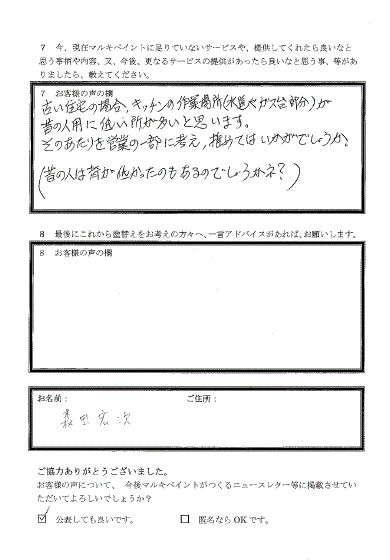 7 今、現在マルキペイントに足りていないサービスや、提供してくれたら良いなと
思う事柄や内容、又、今後、更なるサービスの提供があったら良いなと思う事、等があ
りましたら、教えてください。
7 お客様の声の欄
古い住宅の場合、キッチンの作業場所(水道やガス台部分)が
昔の人用に低い所が多いと思います。
そのあたりを営業の一部に考え、推めてはいかがでしょうか。
(昔の人は背が低かったのもあるのでしょうかネ?)
8 最後にこれから塗替えをお考えの方々へ、一言アドバイスがあれば、お願いします。
8 お客様の声の欄
お名前: ご住所:
森田宏次
ご協力ありがとうございました。
お客様の声について、今後マルキペイントがつくるニュースレター等に掲載させてい
ただいてよろしいでしょうか?
☑ 公表しても良いです。 □ 匿名ならOKです。